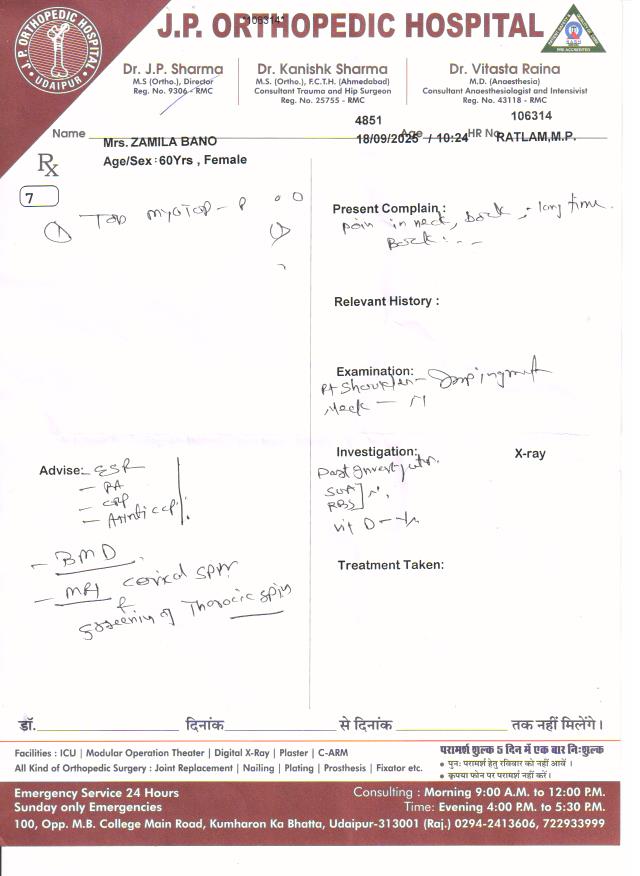 J.P. ORTHOPEDIC HOSPITAL
*1063141*
J.P. ORTHOPEDIC HOSPITAL
• UDAIPUR •
Dr. J.P. Sharma
M.S (Ortho.), Director
Reg. No. 9306 - RMC
Dr. Kanishk Sharma
M.S. (Ortho.), F.C.T.H. (Ahmedabad)
Consultant Trauma and Hip Surgeon
Reg. No. 25755 - RMC
Dr. Vitasta Raina
M.D. (Anaesthesia)
Consultant Anaesthesiologist and Intensivist
Reg. No. 43118 - RMC
4851 106314
Name Mrs. ZAMILA BANO Age 18/09/2025 / 10:24 HR No. RATLAM,M.P.
Age/Sex : 60Yrs , Female
Rx
7
1 Tab Myotop-P
Present Complain :
pain in neck, back, - long time.
Back
Relevant History :
Examination:
Rt Shoulder - Impingment
Neck - N
Investigation: X-ray
Past Investigation
SUA
RBS
Vit D
Treatment Taken:
Advise: - ESR
- RA
- CRP
- Anti ccp
- BMD
- MRI cervical spine
&
Screening of Thoracic spine
डॉ. दिनांक से दिनांक तक नहीं मिलेंगे।
Facilities : ICU | Modular Operation Theater | Digital X-Ray | Plaster | C-ARM
All Kind of Orthopedic Surgery : Joint Replacement | Nailing | Plating | Prosthesis | Fixator etc.
परामर्श शुल्क 5 दिन में एक बार निःशुल्क
• पुनः परामर्श हेतु रविवार को नहीं आवें ।
• कृपया फोन पर परामर्श नहीं करें।
Emergency Service 24 Hours
Sunday only Emergencies
Consulting : Morning 9:00 A.M. to 12:00 P.M.
Time: Evening 4:00 P.M. to 5:30 P.M.
100, Opp. M.B. College Main Road, Kumharon Ka Bhatta, Udaipur-313001 (Raj.) 0294-2413606, 722933999